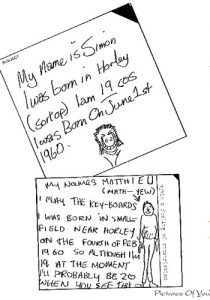 My Name is Simon
I was born in Horley
(sort of) I am 19 cos
I was Born On June 1st
1960.
MY NAUMES MATTHIEU
(MATH-YEW)
I PLAY THE KEY-BOARDS
I WAS BORN IN SMALL
FIELD NEAR HORLEY
ON THE FOURTH OF FEB
1960 SO ALTHOUGH I'M
19 AT THE MOMENT
I'LL PROBABLY BE 20
WHEN YOU SEE THIS
Pictures Of You